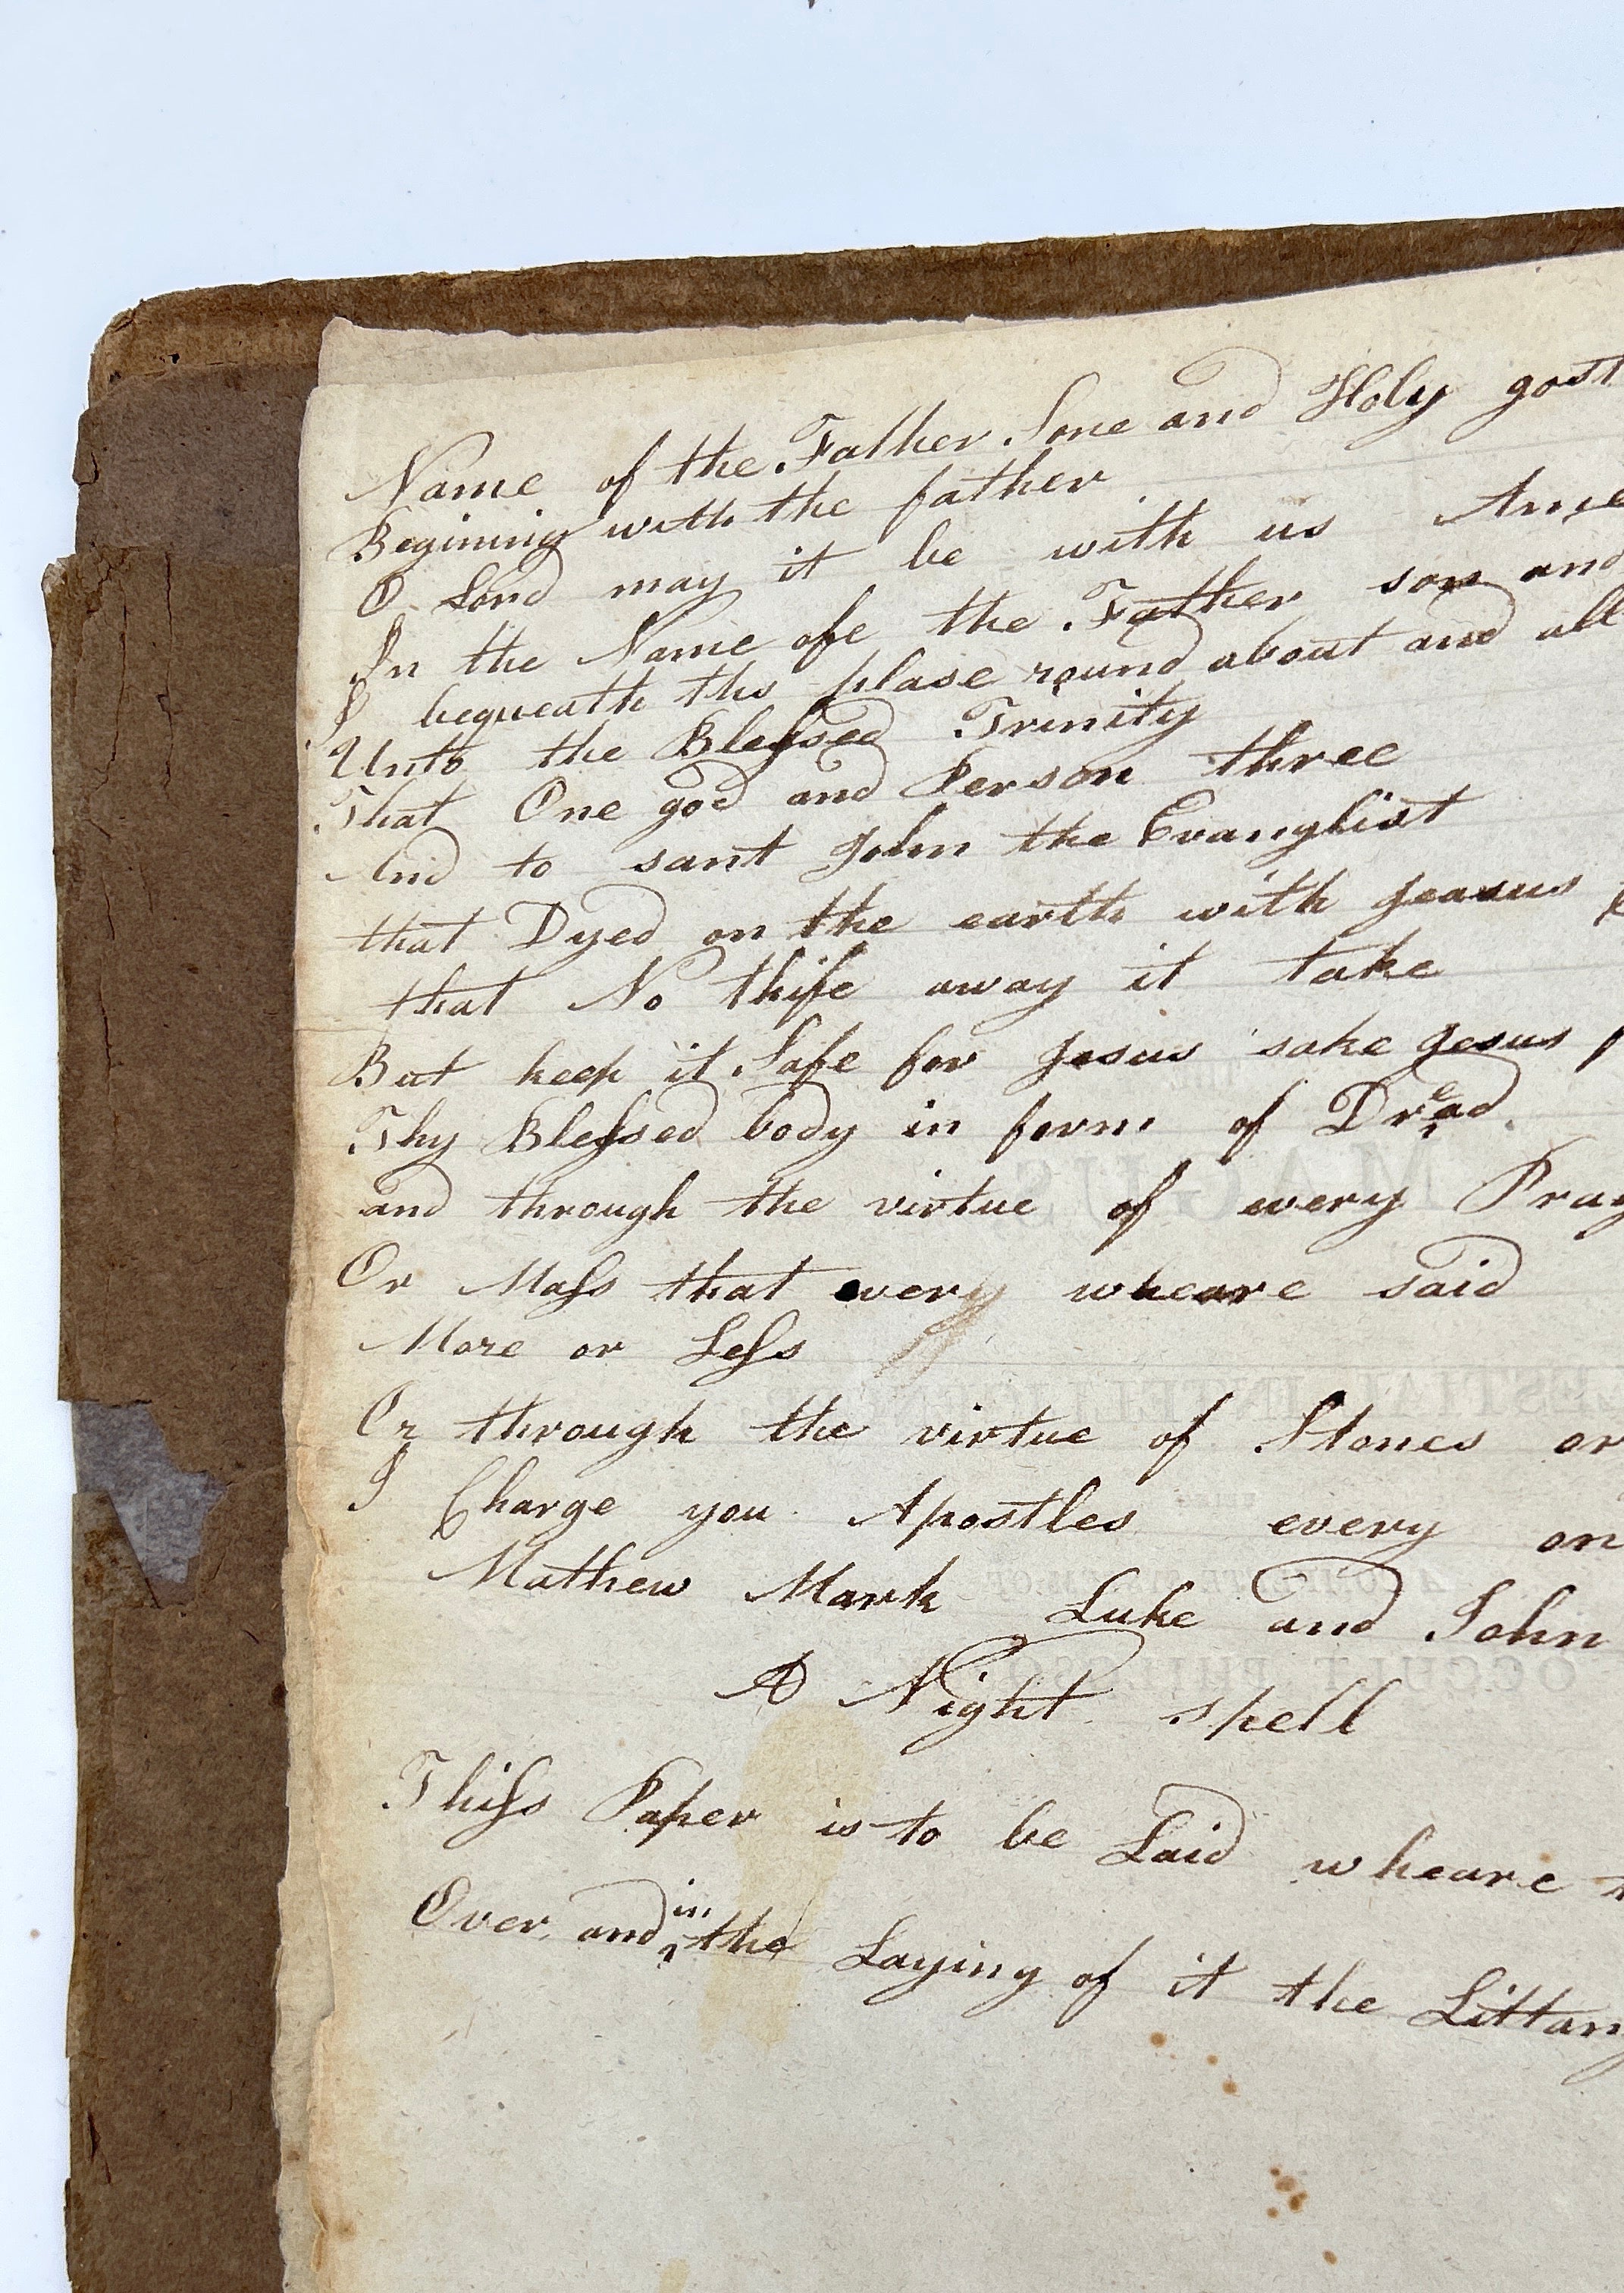 Name of the Father Sone and Holy gost
Begining with the father
O Lord may it be with us Ame
In the Name ofe the Father son and
I bequeath ths plase round about and all
Unto the Blessed Trinity
That One god and Person three
And to sant John the Evanglist
that Dyed on the earth with Jeasus
that No thife away it take
But keep it Safe for Jesus sake Jesus
Thy Blessed body in form of Dread
and through the virtue of every Pray
Or Mass that every wheare said
More or Less
Or through the virtue of Stones or
I Charge you Apostles every on
Mathew Mark Luke and John
A Night spell
Thiss Paper is to be Laid wheare
Over and in the Laying of it the Littany
MAGUS
ESTIAL INTELLIGENCER
OCCULT PHILOSO